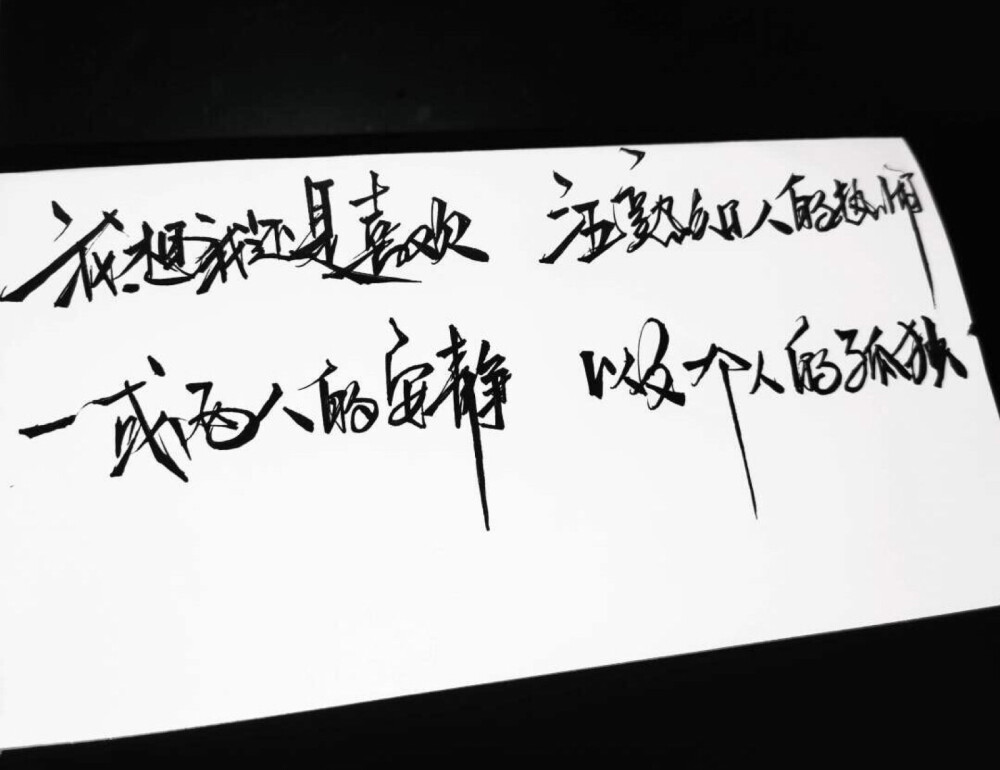 我想我还是喜欢 熟知人的热闹
一或两人的安静 以及一个人的孤独